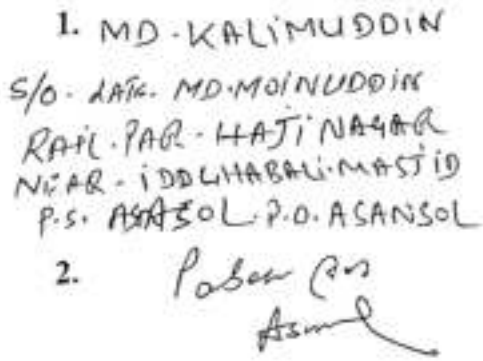 1. MD. KALIMUDDIN
S/O. LATE. MD. MOINUDDIN
RAIL. PAR. HAJI NAGAR
NEAR. IDDGHABALI. MASJID
P.S. ASASOL. P.O. ASANSOL
2.